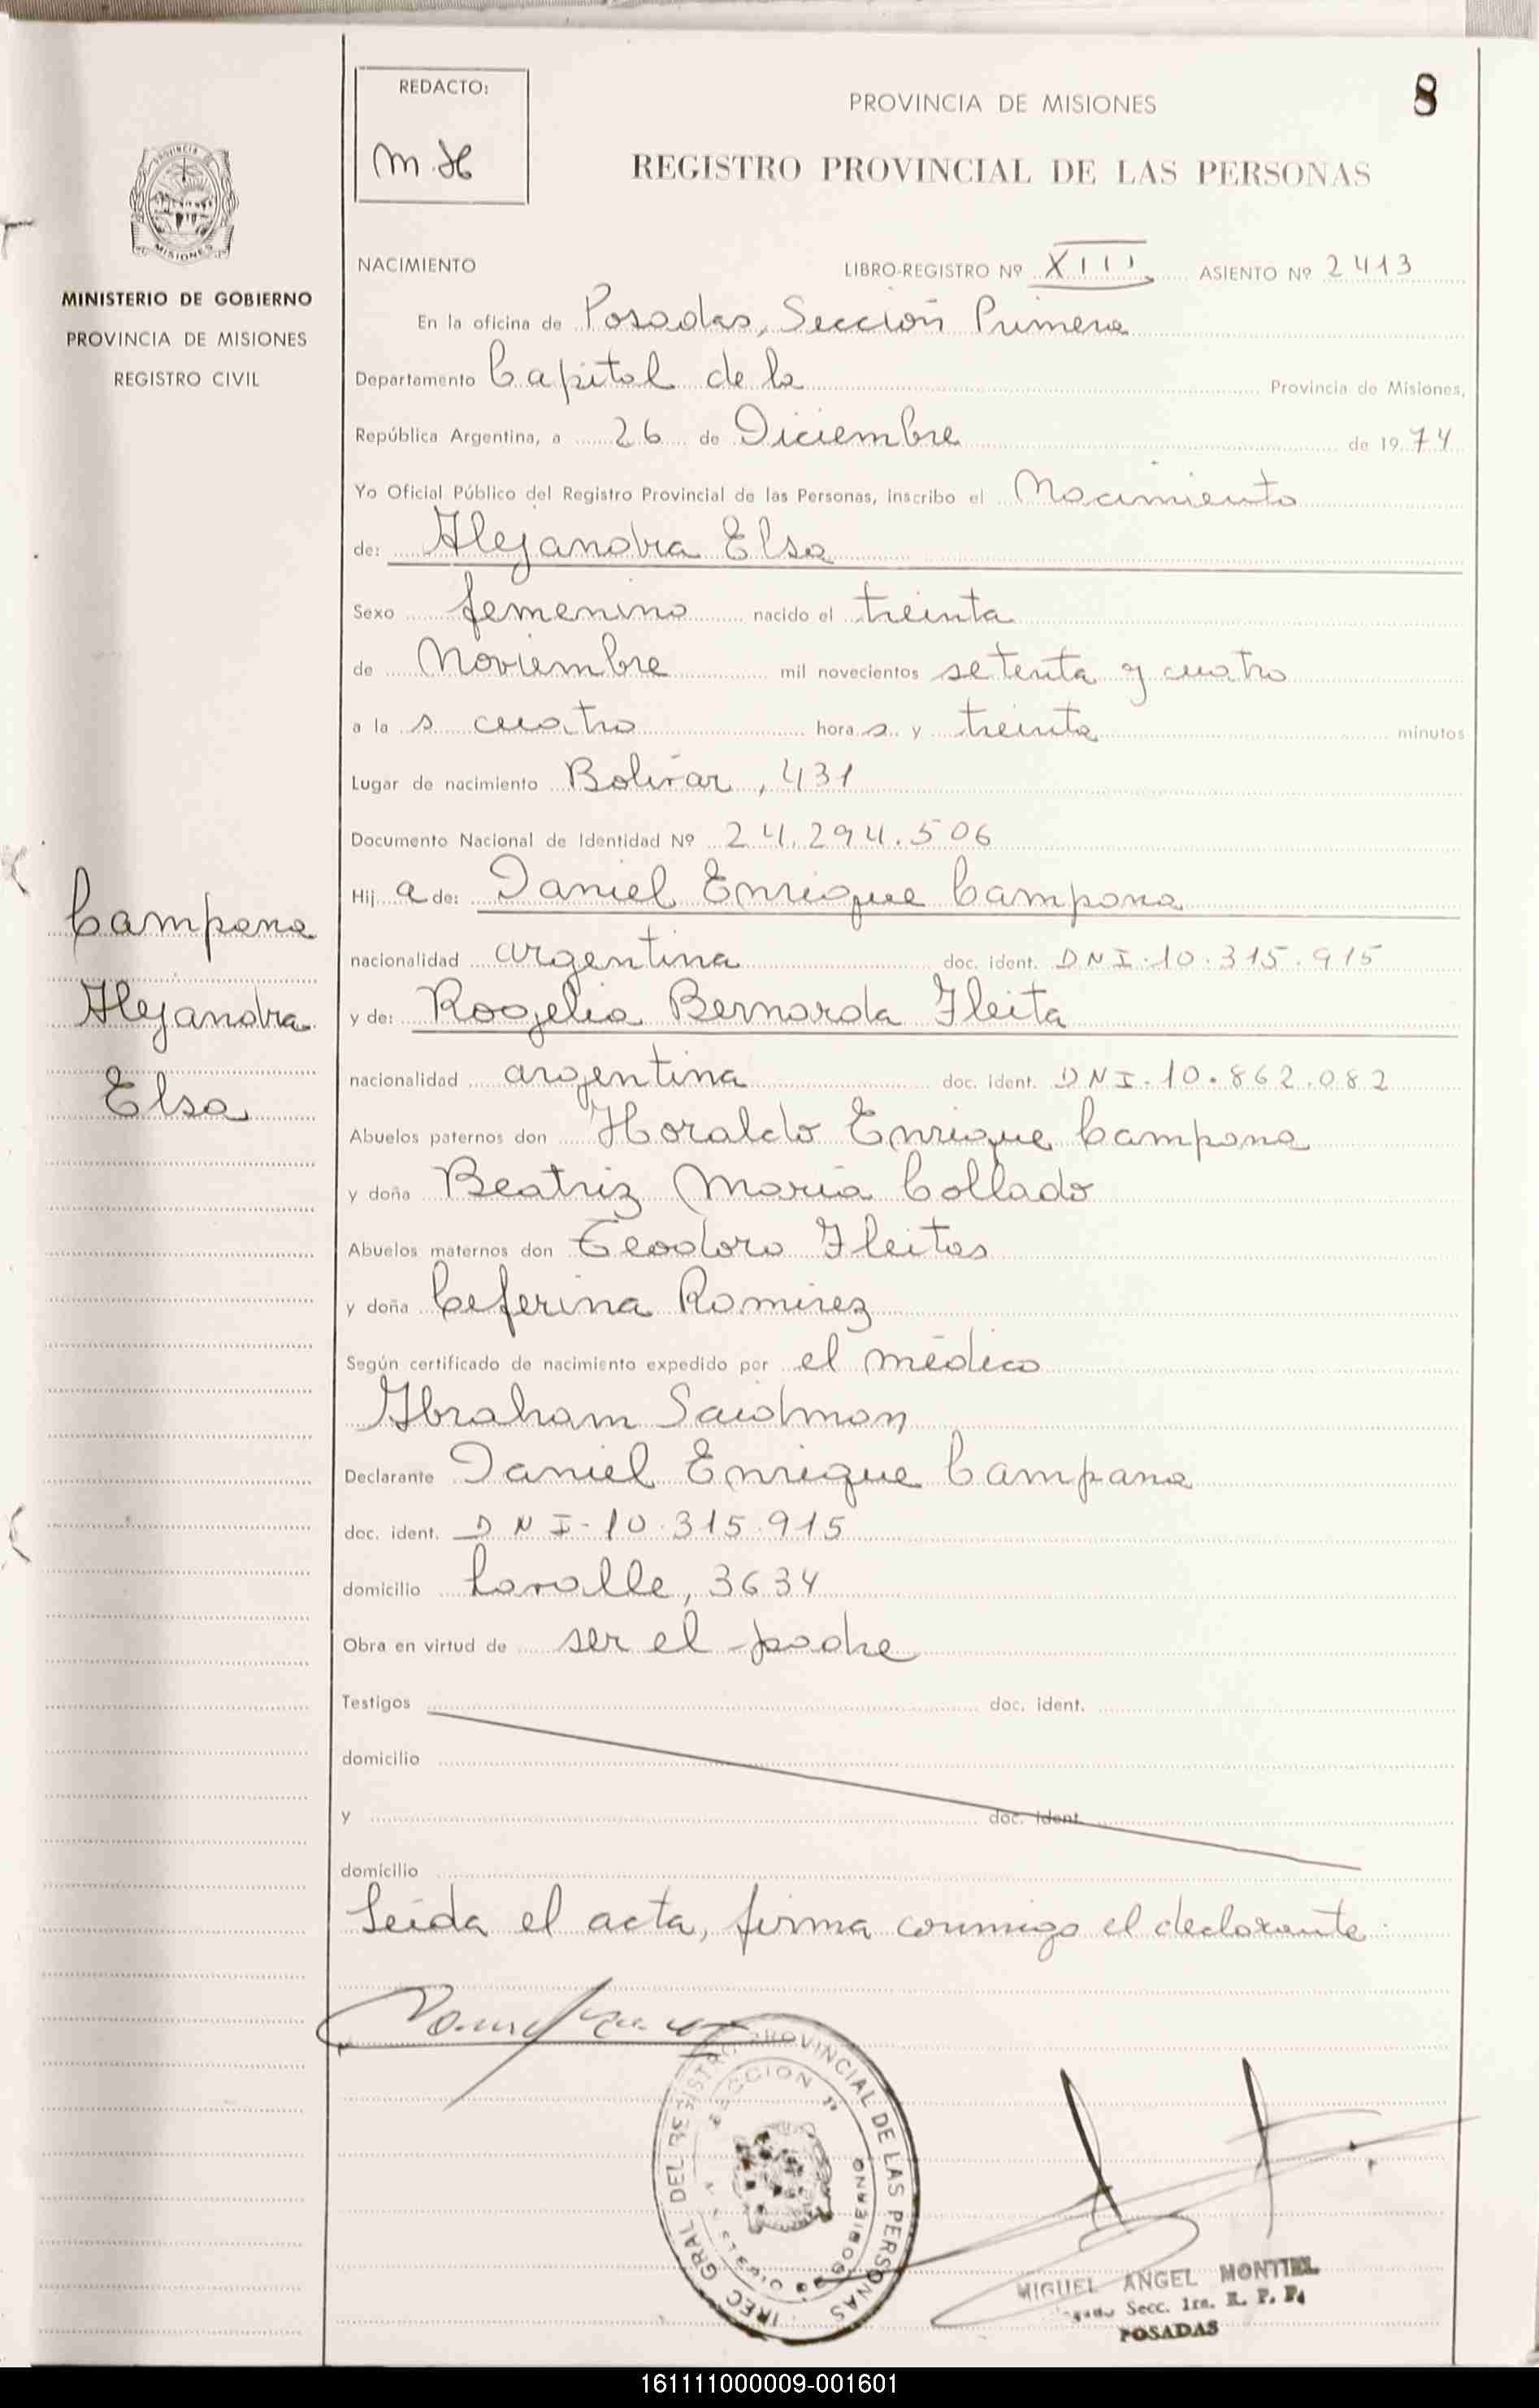 REDACTO:
M.H
PROVINCIA DE MISIONES
8
REGISTRO PROVINCIAL DE LAS PERSONAS
PROVINCIA DE
MISIONES
MINISTERIO DE GOBIERNO
PROVINCIA DE MISIONES
REGISTRO CIVIL
NACIMIENTO LIBRO-REGISTRO Nº XIII ASIENTO Nº 2413
En la oficina de Posadas, Sección Primera
Departamento Capital de la Provincia de Misiones,
República Argentina, a 26 de Diciembre de 1974
Yo Oficial Público del Registro Provincial de las Personas, inscribo el Nacimiento
de: Alejandra Elsa
Sexo femenino nacido el treinta
de Noviembre mil novecientos setenta y cuatro
a las cuatro horas y treinta minutos
Lugar de nacimiento Bolívar, 431
Documento Nacional de Identidad Nº 24.294.506
Hija de: Daniel Enrique Campana
nacionalidad argentina doc. ident. DNI-10.315.915
y de: Rogelia Bernarda Fleita
nacionalidad argentina doc. ident. DNI-10.862.082
Abuelos paternos don Horaldo Enrique Campana
y doña Beatriz María Collado
Abuelos maternos don Teodoro Fleitas
y doña Ceferina Romirez
Según certificado de nacimiento expedido por el médico
Abraham Saidman
Declarante Daniel Enrique Campana
doc. ident. DNI-10.315.915
domicilio Lavalle, 3634
Obra en virtud de ser el padre
Testigos doc. ident.
domicilio
y doc. ident.
domicilio
Leída el acta, firma conmigo el declarante:
Campana
Alejandra
Elsa
DEL REGISTRO PROVINCIAL DE LAS PERSONAS
SECCION 1ª
MIGUEL ANGEL MONTIEL
Secc. 1ra. R. P. P.
POSADAS
161111000009-001601